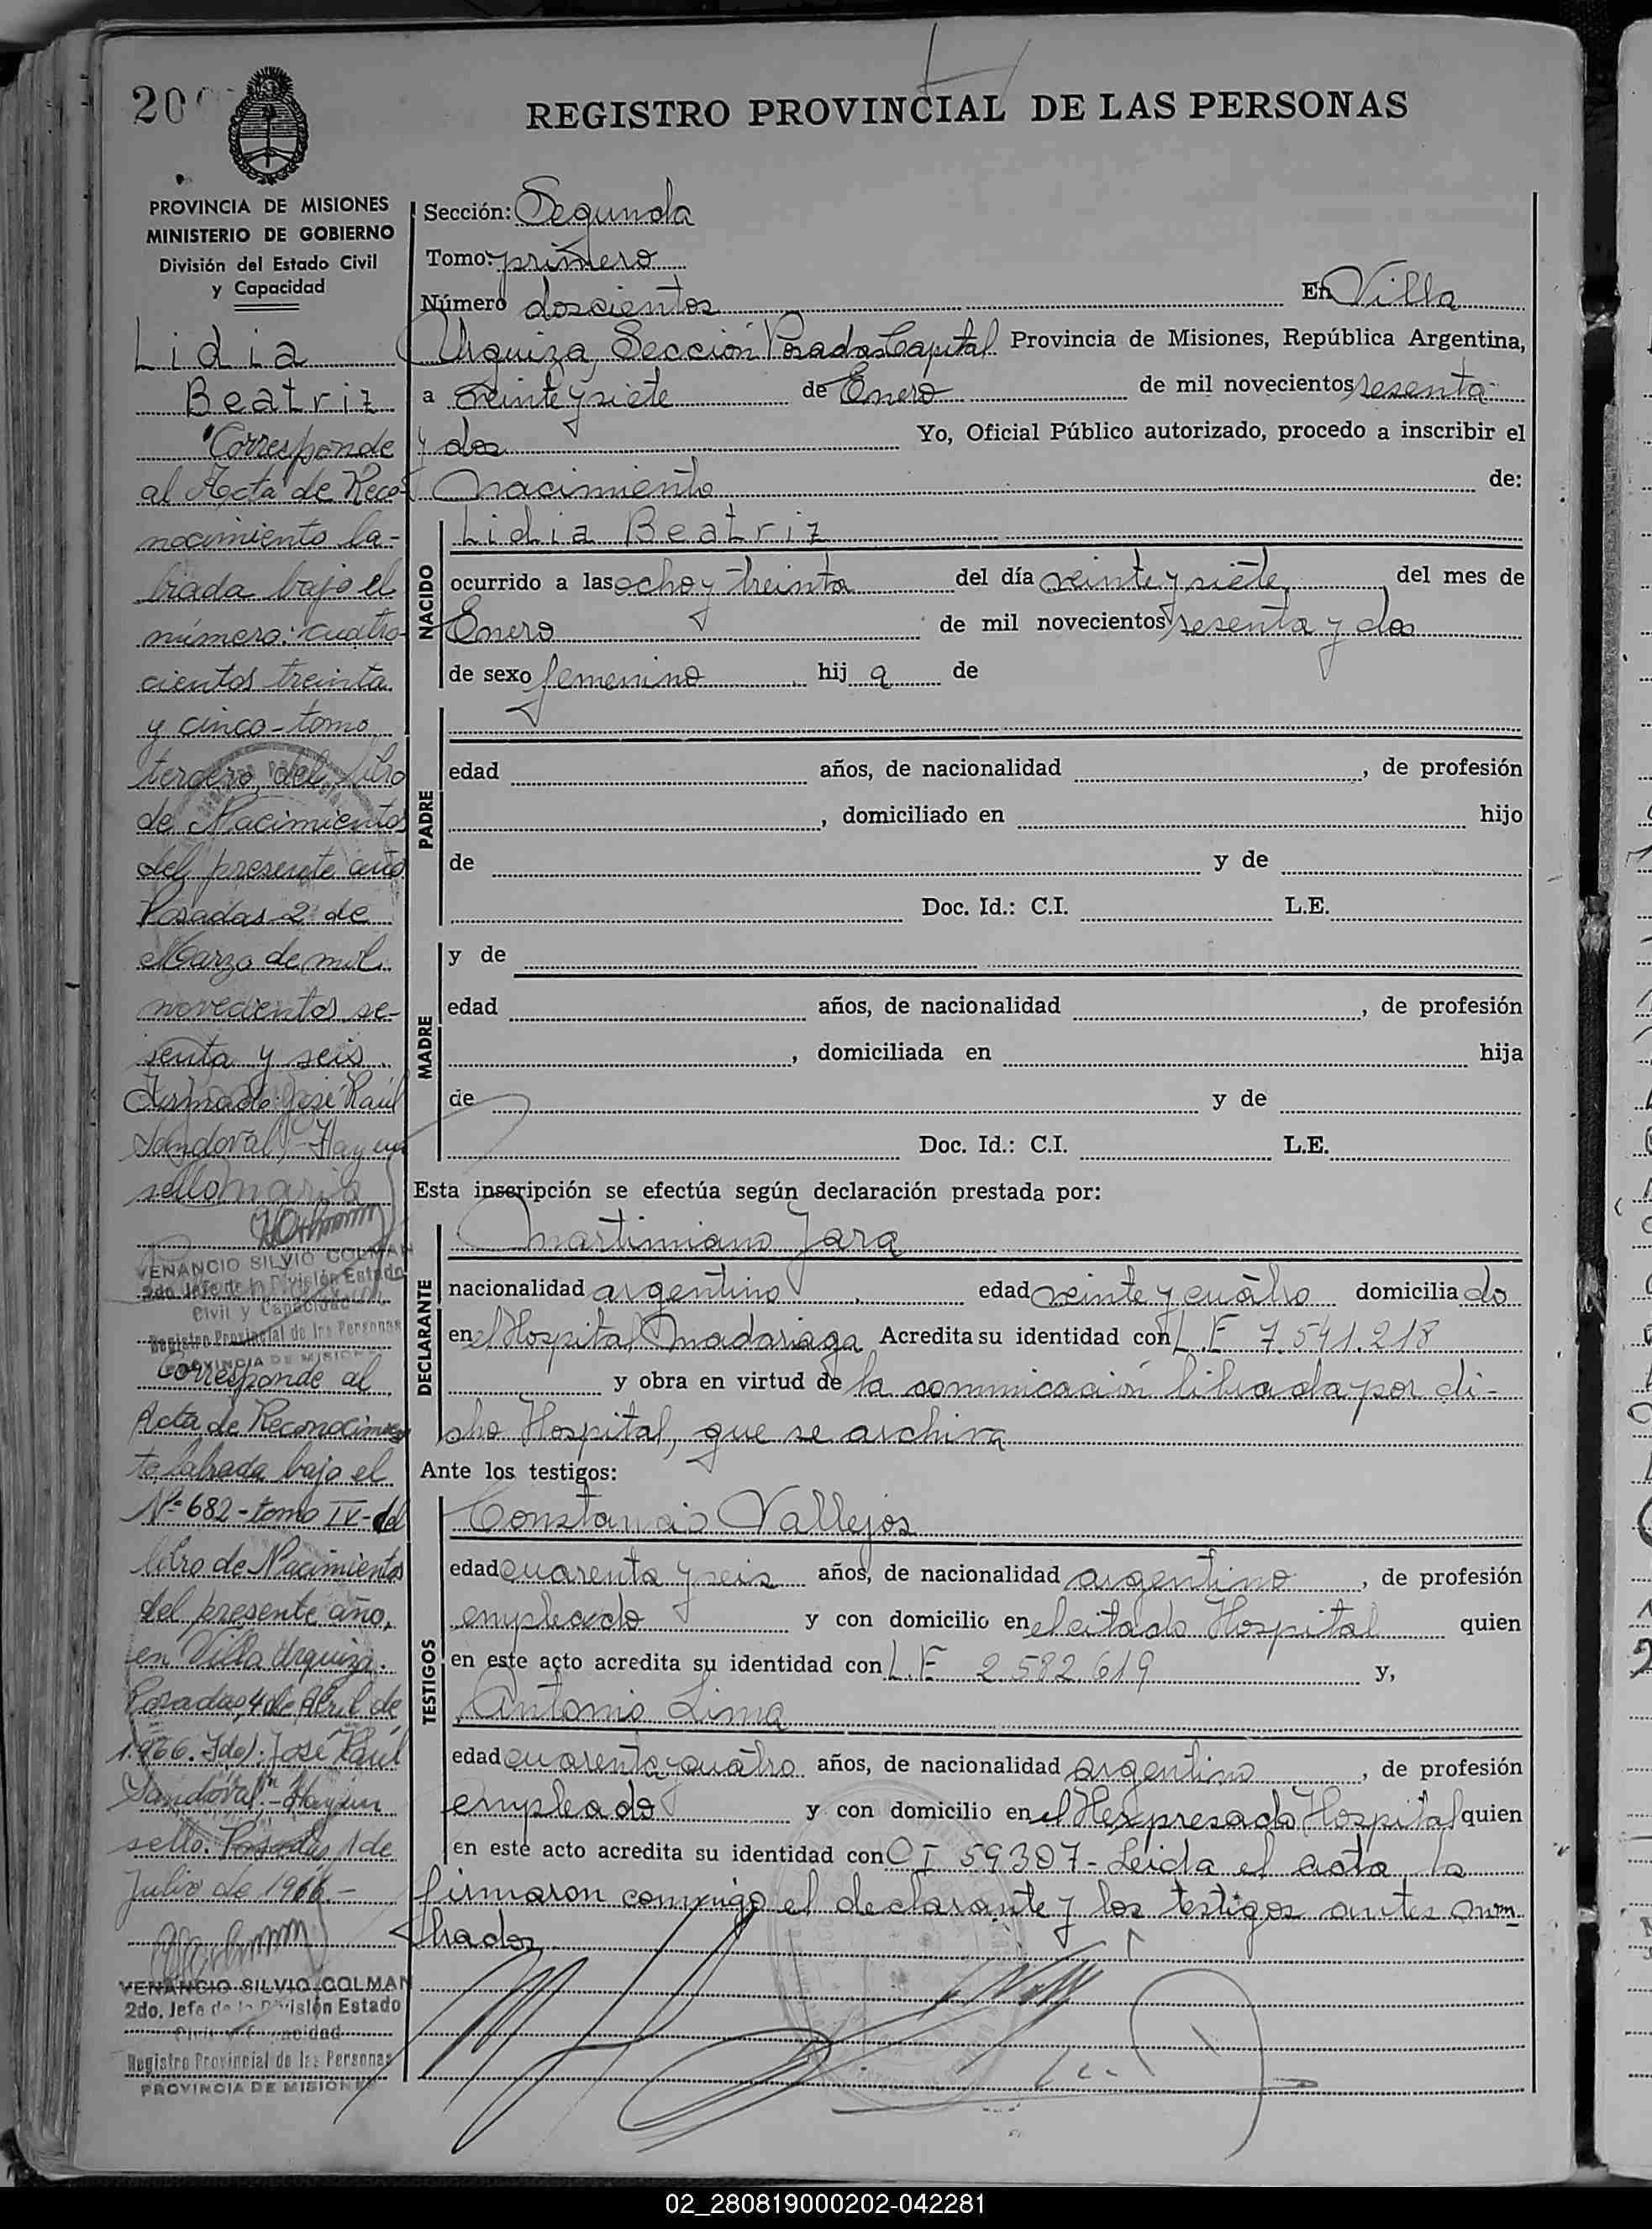 20
REGISTRO PROVINCIAL DE LAS PERSONAS
PROVINCIA DE MISIONES
MINISTERIO DE GOBIERNO
División del Estado Civil
y Capacidad
Lidia
Beatriz
Corresponde
al Acta de Reco-
nocimiento la-
brada bajo el
número: cuatro-
cientos treinta
y cinco-tomo
tercero del libro
de Nacimientos
del presente año
Posadas 2 de
Marzo de mil
novecientos se-
senta y seis
Firmado: José Raúl
Sandoval - Hay un
sello
VENANCIO SILVIO COLMAN
2do. Jefe de la División Estado
Civil y Capacidad
Registro Provincial de las Personas
PROVINCIA DE MISIONES
Corresponde al
Acta de Reconocimien
to labrada bajo el
Nº 682 - tomo IV - del
libro de Nacimientos
del presente año,
en Villa Urquiza.
Posadas, 4 de Abril de
1.966. Fdo): José Raúl
Sandoval - Hay un
sello. Posadas, 1 de
Julio de 1966.-
VENANCIO SILVIO COLMAN
2do. Jefe de la División Estado
Civil y Capacidad
Registro Provincial de las Personas
PROVINCIA DE MISIONES
Sección: Segunda
Tomo: primero
Número doscientos En Villa
Urquiza, Sección Posadas Capital Provincia de Misiones, República Argentina,
a veinte y siete de Enero de mil novecientos sesenta
y dos Yo, Oficial Público autorizado, procedo a inscribir el
nacimiento de:
NACIDO
Lidia Beatriz
ocurrido a las ocho y treinta del día veinte y siete del mes de
Enero de mil novecientos sesenta y dos
de sexo femenino hij a de
PADRE
edad años, de nacionalidad , de profesión
, domiciliado en hijo
de y de
Doc. Id.: C.I. L.E.
MADRE
y de
edad años, de nacionalidad , de profesión
, domiciliada en hija
de y de
Doc. Id.: C.I. L.E.
Esta inscripción se efectúa según declaración prestada por:
DECLARANTE
Martimiano Jara
nacionalidad argentino edad veinte y cuatro domicilia do
en el Hospital Madariaga Acredita su identidad con L.E 7.541.218
y obra en virtud de la comunicación librada por di-
cho Hospital, que se archiva
Ante los testigos:
TESTIGOS
Constancio Vallejos
edad cuarenta y seis años, de nacionalidad argentino , de profesión
empleado y con domicilio en el citado Hospital quien
en este acto acredita su identidad con L.E 2.582.619 y,
Antonio Lima
edad cuarenta y cuatro años, de nacionalidad argentino , de profesión
empleado y con domicilio en el Hexpresado Hospital quien
en este acto acredita su identidad con CI 59307 - Leida el acta la
firmaron conmigo el declarante y los testigos antes nom
brados
02_280819000202-042281